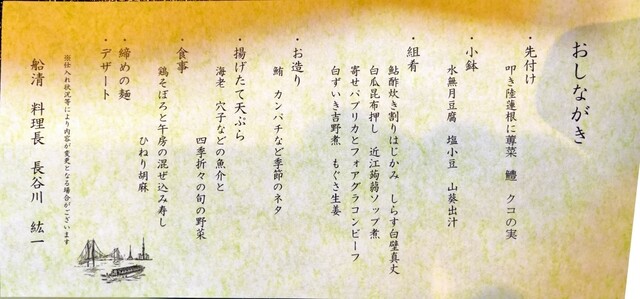 おしながき
・先付け
叩き陸蓮根に蓴菜 鱧 クコの実
・小鉢
水無月豆腐 塩小豆 山葵出汁
・組肴
鮎酢炊き割りはじかみ しらす白壁真丈
白瓜昆布押し 近江蒟蒻ソップ煮
寄せパプリカとフォアグラコンビーフ
白ずいき吉野煮 もぐさ生姜
・お造り
鮪 カンパチなど季節のネタ
・揚げたて天ぷら
海老 穴子などの魚介と
四季折々の旬の野菜
・食事
鶏そぼろと午房の混ぜ込み寿し
ひねり胡麻
・締めの麺
・デザート
※仕入れ状況等により内容が変更となる場合がございます
船清 料理長 長谷川 紘一